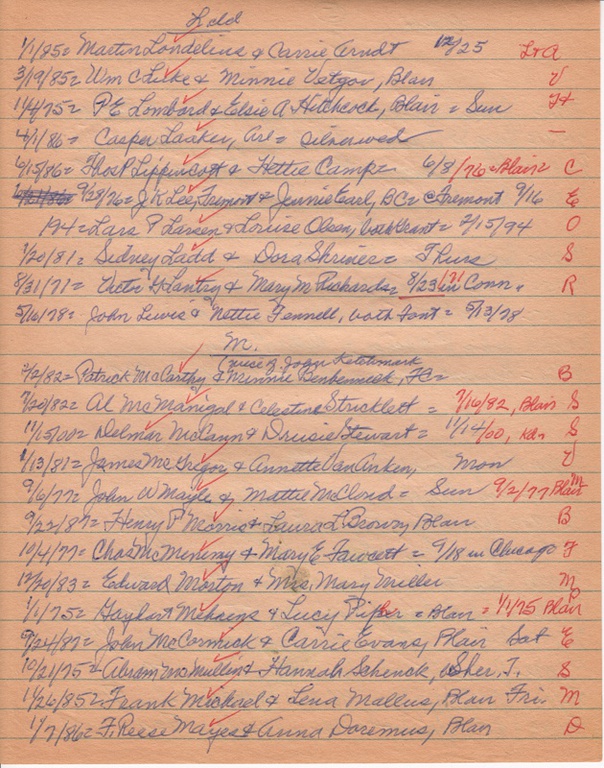 Ladd
1/1/85= Martin Londelius & Carrie Arndt 12/25 L+A
3/19/85= Wm C Liike & Minnie Vatgov, Blair V
11/4/75= P E Lombard & Elsie A Hitchcock, Blair = Sun H
4/1/86= Casper Laaker, Arl= silverwed —
6/15/86= Thos P Lippincott & Hettie Camp= 6/8/76=Blair C
9/28/76= J K Lee, Fremont & Jennie Earl, BC= Fremont 9/16 E
194= Lars P Larsen & Louise Olsen, both Grant= 2/15/94 O
1/20/81= Sidney Ladd & Dora Shriner= Thurs S
8/31/71= Victor G Lantry & Mary M Richards= 8/23/71 in Conn. R
5/16/78= John Lewis & Nettie Fennell, both Font= 5/13/78
M.
(niece of John Ketchmark
2/2/82= Patrick McCarthy & Minnie Benbennick, FC= B
7/20/82= Al McManigal & Celestine Stricklett = 7/16/82, Blair S
11/15/00= Delmar McCann & Drusie Stewart= 11/14/00, Ken S
1/13/81= James McGregor & Annette Van Anken, Mon V
9/6/77= John W Mayle & Mattie McCloud= Sun 9/2/77 Blair M
9/22/87= Henry P Morris & Laura L Brown, Blair B
10/4/77= Chas McMenimy & Mary E Fawcett = 9/18 in Chicago F
12/20/83= Edward Morton & Mrs. Mary Miller M
1/1/75= Gaylord Mehains & Lucy Piper = Blair= 1/1/75 Blair P
5/24/87= John McCormick & Carrie Evans, Blair Sat E
10/21/75= Abram McMullen & Hannah Schenck, Sher. T. S
11/26/85= Frank Michael & Lena Mallus, Blair Fri. M
11/7/86= F. Reese Mayes & Anna Doremus, Blair D